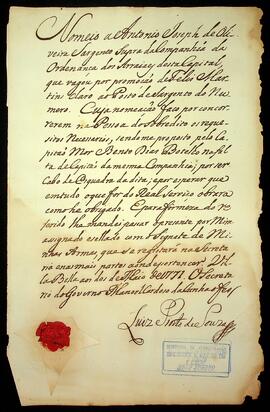 Nomeio a Antonio Joseph de Oli
veira Sargento Supra da Companhia da
Ordenança dos Arraiaes desta Capital,
que vagou por promoção de Felis Marti
Claro ao Posto de Sargento do Nu
mero. Cuja nomeação faço por concor
rerem na Pessoa do sobredito os requi
sitos necessarios, sendo me proposto pelo Capi
tão Mor Bento Dias Botelho na fal
ta de Capitão da mesma Companhia; por ser
Cabo de Esquadra da dita; e por esperar que
em tudo o que for do Real serviço obrará
como he obrigado. E para firmeza do re
ferido lhe mandei passar a presente por Mim
asignada e sellada com o Signete de Mi
nhas Armas, que se registará na Secreta
ria e nas mais partes aonde pertencer. Vil
la Bella aos dos de 1771. O Secreta
rio do Governo Manoel Cardoso da Cunha o fes
Luiz Pinto de Souza